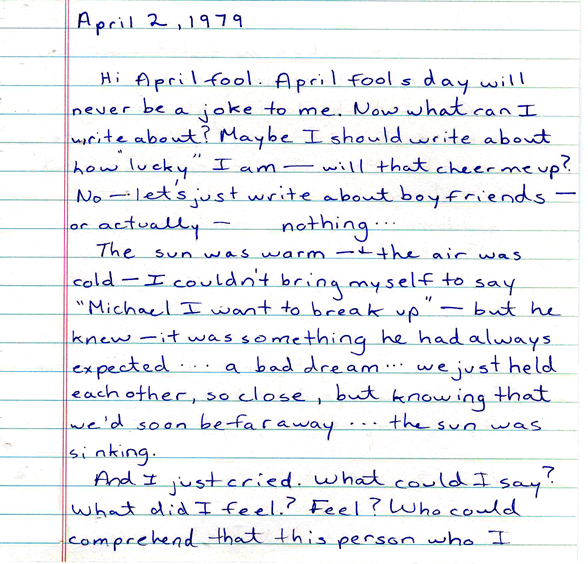 April 2, 1979
Hi April fool. April fools day will
never be a joke to me. Now what can I
write about? Maybe I should write about
how "lucky" I am — will that cheer me up?
No — let's just write about boyfriends —
or actually — nothing...
The sun was warm — + the air was
cold — I couldn't bring myself to say
"Michael I want to break up" — but he
knew — it was something he had always
expected ... a bad dream ... we just held
each other, so close, but knowing that
we'd soon be far away ... the sun was
sinking.
And I just cried. What could I say?
What did I feel.? Feel? Who could
comprehend that this person who I